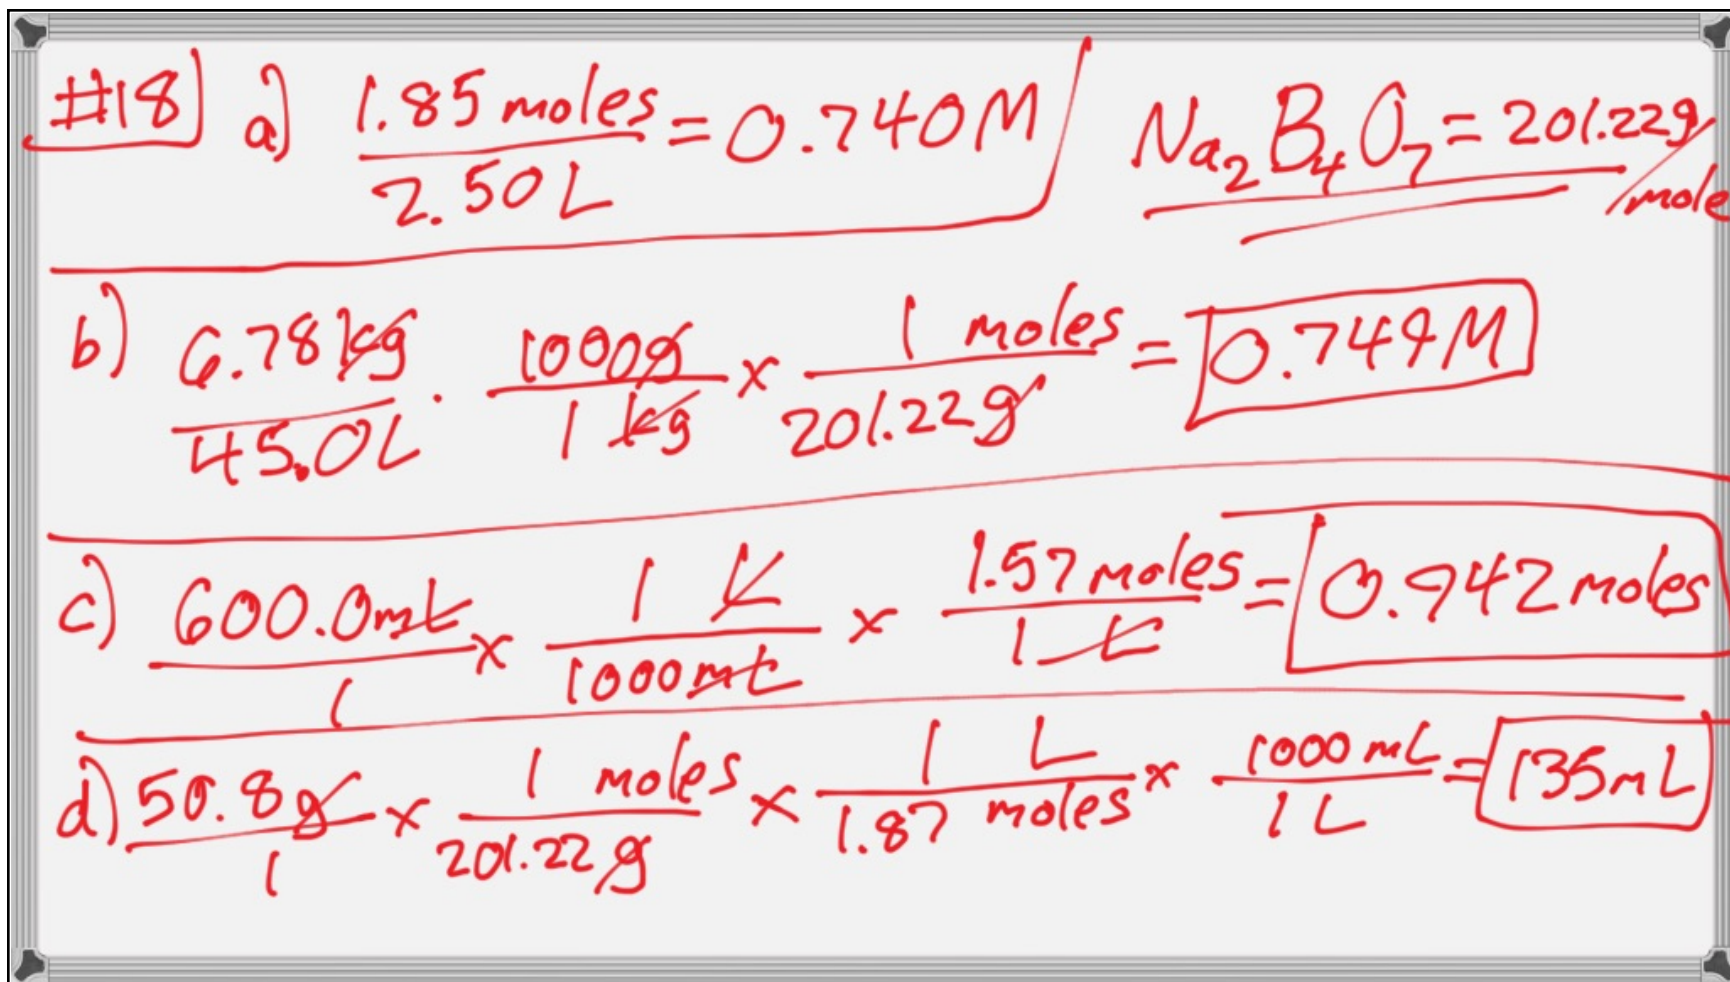 #18] a) 1.85 moles / 2.50 L = 0.740 M
Na₂B₄O₇ = 201.22g/mole
b) 6.78 kg / 45.0L · 1000g / 1 kg x 1 moles / 201.22g = 0.749 M
c) 600.0mL / 1 x 1 L / 1000mL x 1.57 moles / 1 L = 0.942 moles
d) 50.8g / 1 x 1 moles / 201.22g x 1 L / 1.87 moles x 1000 mL / 1 L = 135mL